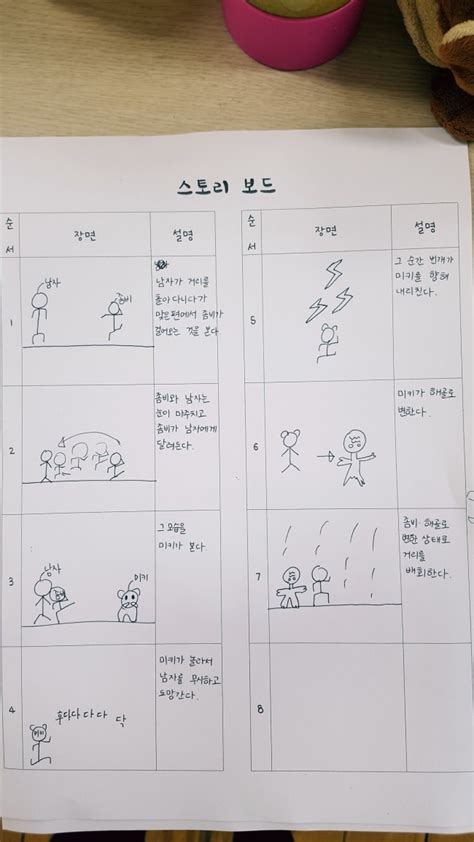 스토리 보드
순서
장면
설명
1
남자
좀비
남자가 거리를
돌아다니다가
맞은편에서 좀비가
걸어오는 것을 본다
2
좀비와 남자는
눈이 마주치고
좀비가 남자에게
달려든다.
3
남자
좀비
미키
그 모습을
미키가 본다.
4
미키
후다다 다 다 닥
미키가 놀라서
남자를 무시하고
도망간다.
순서
장면
설명
5
그 순간 번개가
미키를 향해
내리친다.
6
미키가 해골로
변한다.
7
좀비·해골로
변한 상태로
거리를
배회한다.
8